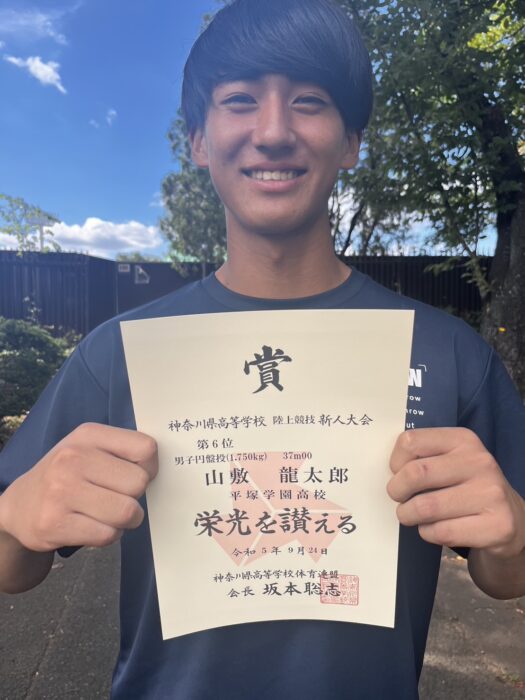 賞
神奈川県高等学校 陸上競技 新人大会
第6位
男子円盤投(1.750kg) 37m00
山敷 龍太郎
平塚学園高校
栄光を讃える
令和5年9月24日
神奈川県高等学校体育連盟
会長 坂本聡志